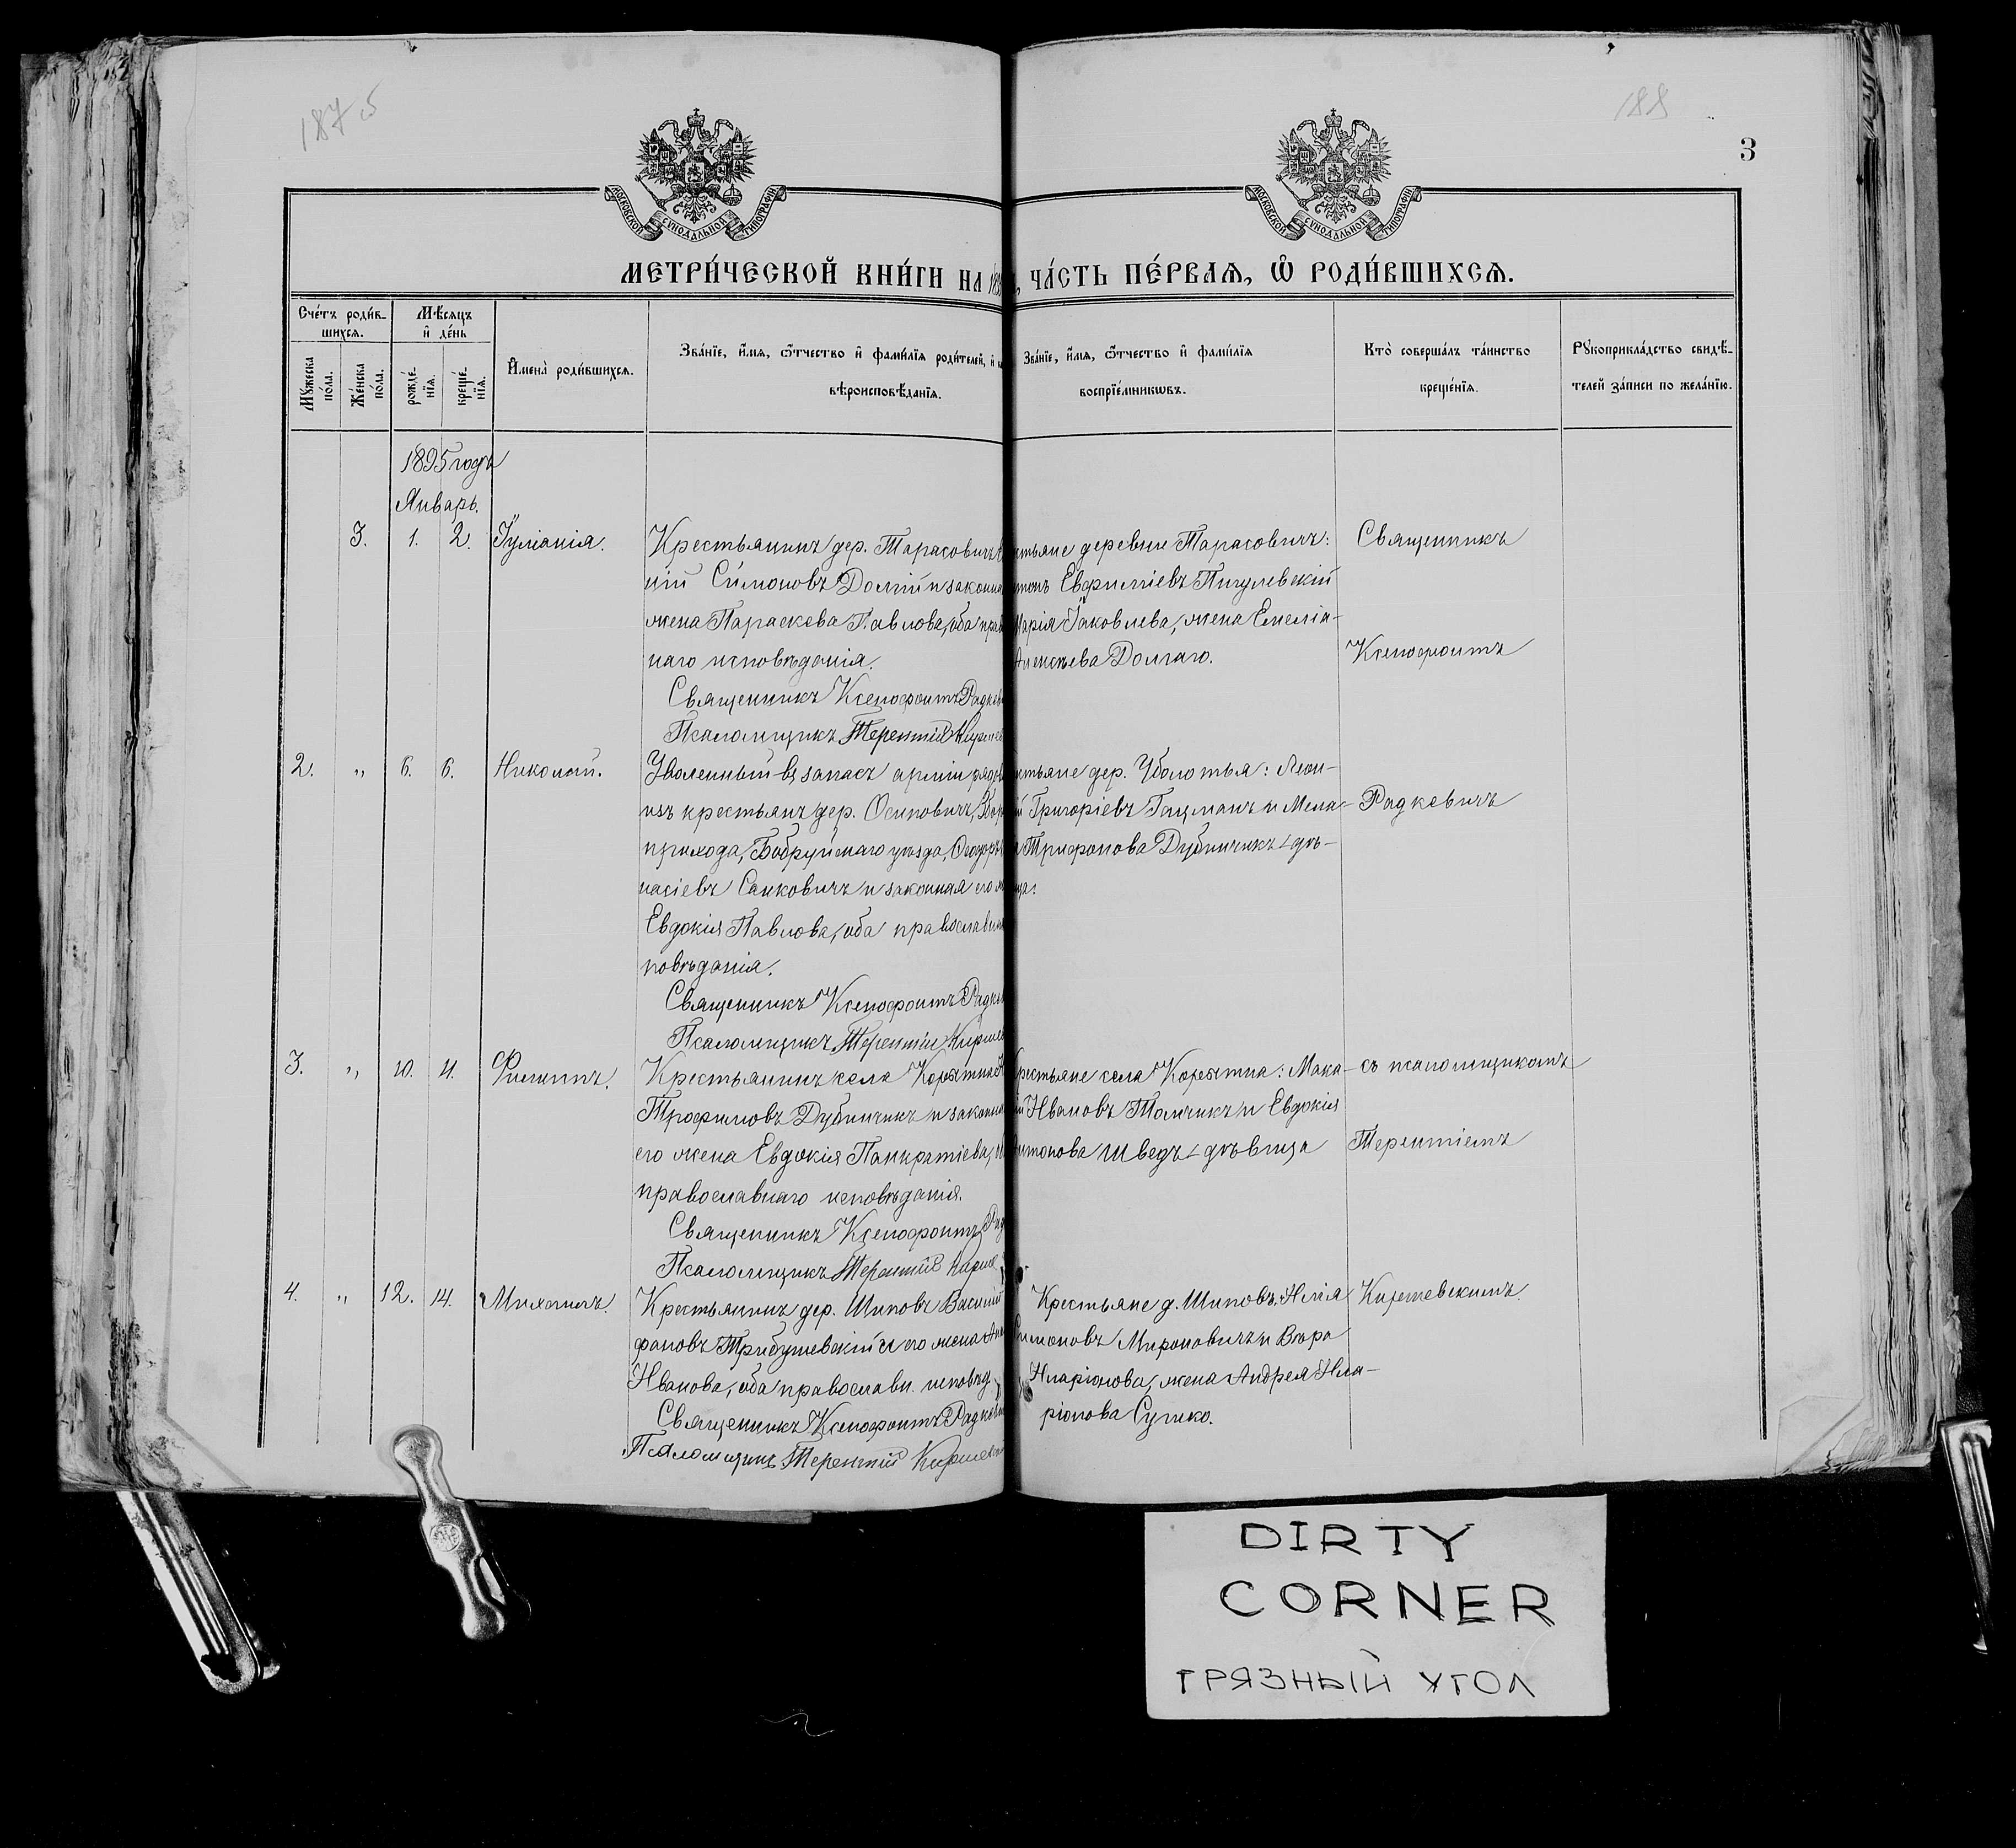 187 об
188
3
МОСКОВСКОЙ СѴНОДАЛЬНОЙ ТИПОГРАФІИ
МОСКОВСКОЙ СѴНОДАЛЬНОЙ ТИПОГРАФІИ
МЕТРИ́ЧЕСКОЙ КНИ́ГИ НА 189 , ЧА́СТЬ ПЕ́РВАѦ, Ѽ РОДИ́ВШИХСѦ.
Сче́тъ роди́в-
шихсѧ.
Мꙋжеска
пола.
Же́нска
по́ла.
Мѣ́сѧцъ
и҆ де́нь
рожде́-
нїѧ.
креще́-
нїѧ.
И҆мена̀ роди́вшихсѧ.
Зва́нїе, и҆́мѧ, ѻ҆́тчество и҆ фамилїѧ роди́телей, и҆
вѣроисповѣ́данїѧ.
Зва́нїе, и҆́мѧ, ѻ҆́тчество и҆ фами́лїѧ
воспрїе́мникѡвъ.
Кто̀ соверша́лъ та́инство
креще́нїѧ.
Рꙋкоприкла́дство свидѣ́-
телей за́писи по жела́нїю.
1895 годъ
Январь.
3. 1. 2. Іуліанія.
Крестьянинъ дер. Тарасовичъ
ній Симоновъ Долгій и законна
жена Параскева Павлова, оба прав
наго исповѣданія.
Священникъ Ксенофонтъ Радкев
Псаломщикъ Терентій Кирше
стьяне деревни Тарасовичъ:
Евфиміевъ Пигулевскій
Марія Іаковлева, жена Емеліа-
Алексѣева Долгаго.
Священникъ
Ксенофонтъ
2. „ 6. 6. Николай.
Уволенный въ запасъ арміи рядов
изъ крестьянъ дер. Осиповичъ,
прихода, Бобруйскаго уѣзда, Ѳеодоръ
насіевъ Санковичъ и законная его
Евдокія Павлова, оба православн
повѣданія.
Священникъ Ксенофонтъ Радке
Псаломщикъ Терентій Кирше
стьяне дер. Уболотья: Леон-
й Григоріевъ Гацманъ и Мела-
Трифонова Дубинчикъ - дѣ-
ица:
Радкевичъ
3. „ 10. 11. Филиппъ.
Крестьянинъ села Корытна
Трофимовъ Дубинчикъ и законна
его жена Евдокія Панкратіева,
православнаго исповѣданія.
Священникъ Ксенофонтъ Рад
Псаломщикъ Терентій Кирше
рестьяне села Корытна: Мака-
ій Ивановъ Толчикъ и Евдокія
Антонова Шведъ - дѣвица
съ псаломщикомъ
Терентіемъ
4. „ 12. 14. Михаилъ.
Крестьянинъ дер. Шиповъ Василій
фановъ Трибушевскій и его жена Анн
Иванова, оба православн. исповѣд.
Священникъ Ксенофонтъ Радкев
Псаломщикъ Терентій Киршев
Крестьяне д. Шиповъ: Илія
Симоновъ Мироновичъ и Вѣра
Иларіонова, жена Андрея Ила-
ріонова Сушко.
Киршевскимъ.
DIRTY
CORNER
ГРЯЗНЫЙ УГОЛ